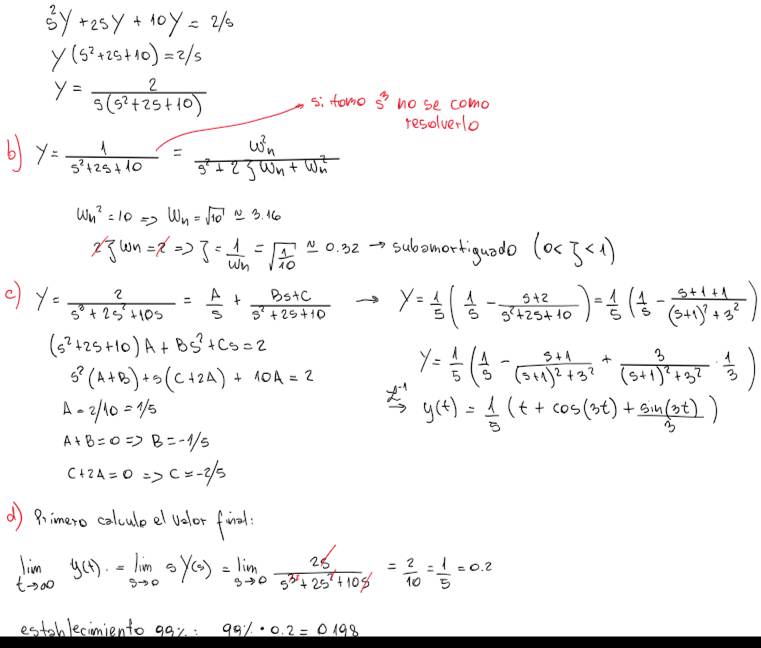 s²Y + 2sY + 10Y = 2/s
Y(s²+2s+10) = 2/s
Y = 2/(s(s²+2s+10))
si tomo s³ no se como
resolverlo
b) Y = 1/(s²+2s+10) = Wn²/(s²+2ζWn+Wn²)
Wn² = 10 => Wn = √10 ≃ 3.16
2ζWn = 2 => ζ = 1/Wn = √(1/10) ≃ 0.32 → subamortiguado (0<ζ<1)
c) Y = 2/(s³+2s²+10s) = A/s + (Bs+C)/(s²+2s+10) → Y = 1/5 (1/s - (s+2)/(s²+2s+10)) = 1/5 (1/s - (s+1+1)/((s+1)²+3²))
(s²+2s+10)A + Bs² + Cs = 2
s²(A+B) + s(C+2A) + 10A = 2
A = 2/10 = 1/5
A+B = 0 => B = -1/5
C+2A = 0 => C = -2/5
Y = 1/5 (1/s - (s+1)/((s+1)²+3²) + 3/((s+1)²+3²) · 1/3)
ℒ⁻¹→ y(t) = 1/5 (t + cos(3t) + sin(3t)/3)
d) Primero calculo el valor final:
lim t→∞ y(t) · = lim s→0 s Y(s) = lim s→0 2s/(s³+2s²+10s) = 2/10 = 1/5 = 0.2
establecimiento 99%: 99% · 0.2 = 0.198